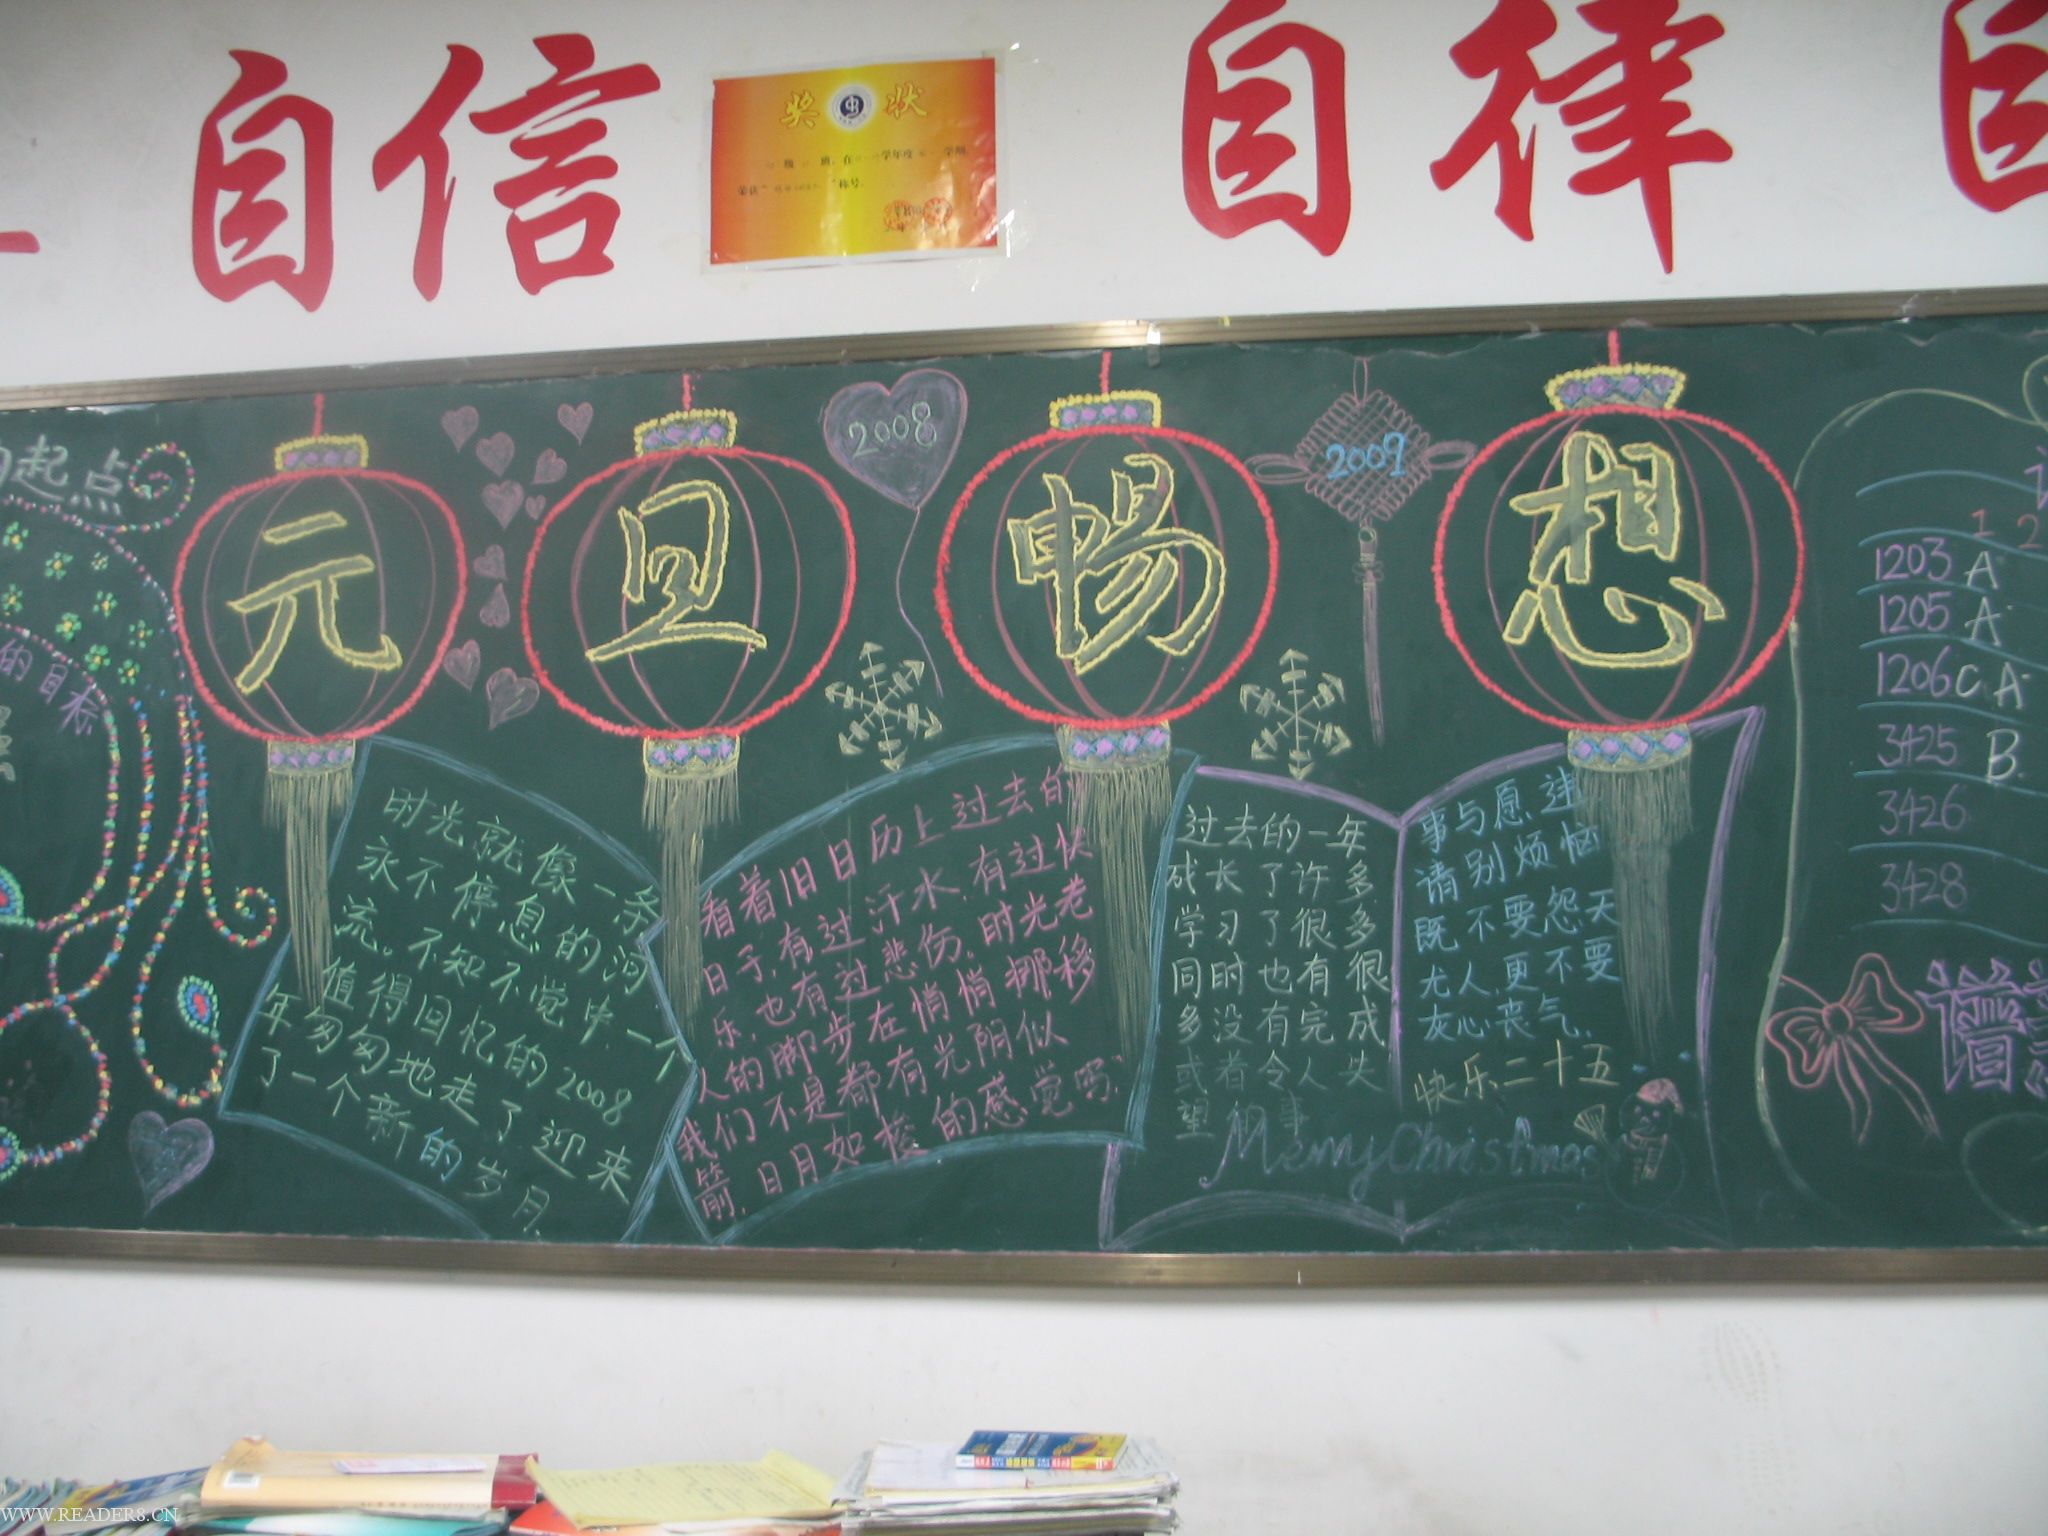 自信
奖 状
自律
自
起点
的目标
2008
2009
元旦畅想
时光就像一条
永不停息的河
流。不知不觉中,一个
值得回忆的2008
年匆匆地走了迎来
了一个新的岁月.
看着旧日历上过去的
日子,有过汗水,有过快
乐,也有过悲伤,时光老
人的脚步在悄悄挪移
我们不是都有光阴似
箭,日月如梭的感觉吗.
过去的一年
成长了许多
学习了很多
同时也有很
多没有完成
或者令人失
望的事
事与愿违
请别烦恼
既不要怨天
尤人,更不要
灰心丧气.
快乐二十五
Merry Christmas
1 2
1203 A
1205 A
1206 C A
3425 B
3426
3428
谱
WWW.READER8.CN